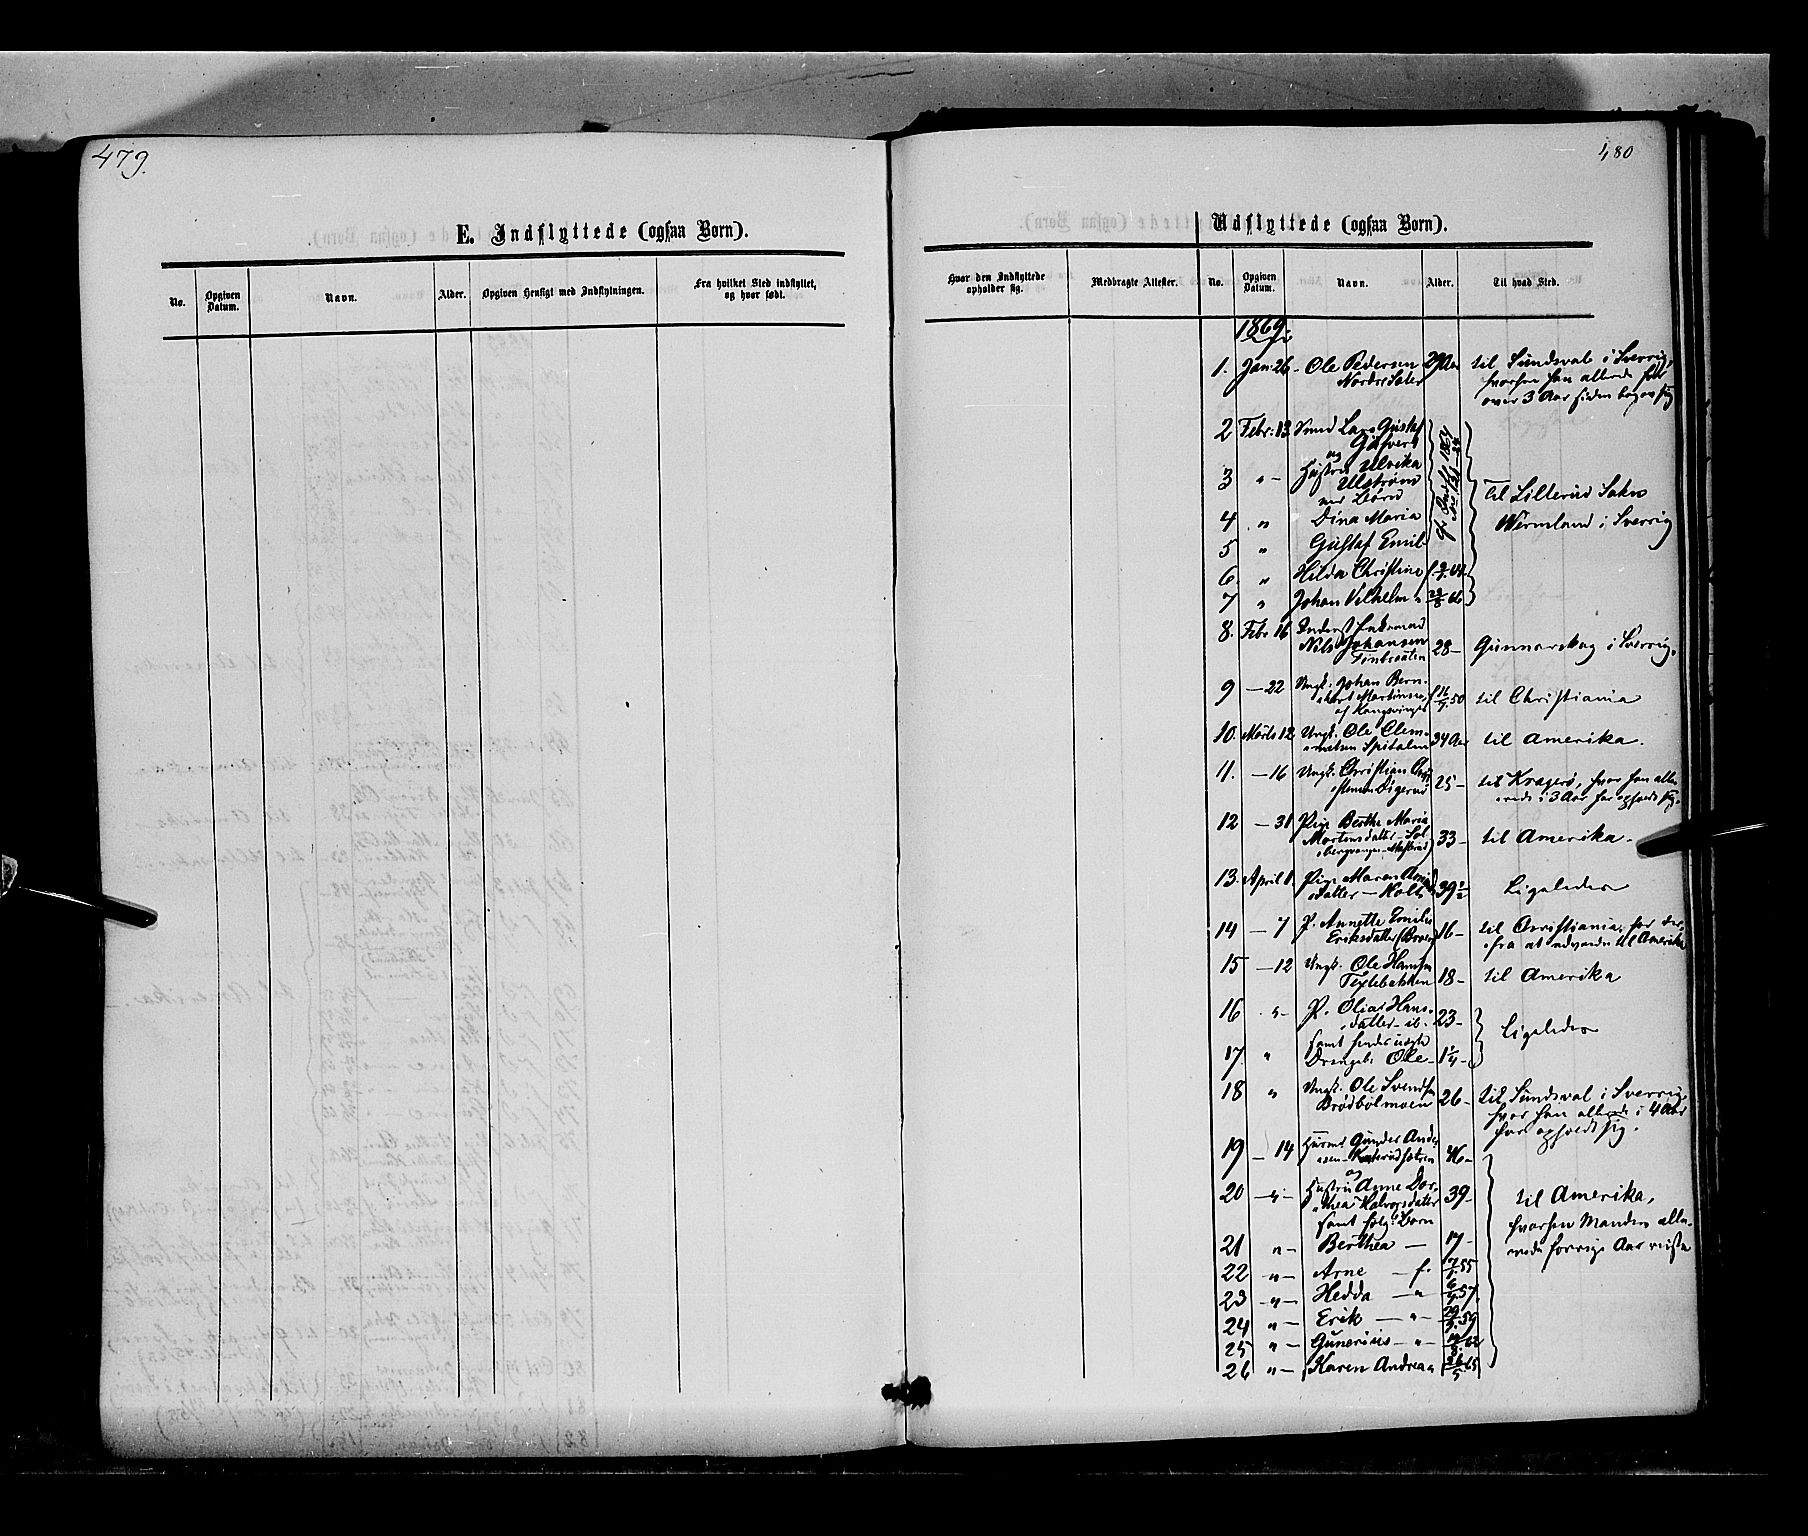 479.
E. Indflyttede (ogsaa Børn).
No.
Opgiven Datum.
Navn.
Alder.
Opgiven Hensigt med Indflytningen.
Fra hvilket Sted indflyttet, og hvor født.
480
Udflyttede (ogsaa Børn).
Hvor den Indflyttede opholder sig.
Medbragte Attester.
No.
Opgiven Datum.
Navn.
Alder.
Til hvad Sted.
1869.
1. Jan: 26 - Ole Pedersen 29 Aar til Sundsval i Sverrig,
hvorhen han allerede for
over 3 Aar siden begav sig
2 Febr: 13 Smed Lars Gustaf
og
3 " - Hustru Ulrika
Ulstrøm
med Børn
til Lillerud Sokn
4 " Dina Maria
Wermland i Sverrig
5 " Gustaf Emil
6. " Hilda Christine
7 " Johan Vilhelm "
8. Febr 16
Nils Johansen 28 - Gunnarskog i Sverrig.
9 - 22 Ungk. Johan Bern-
hart Martinsen f. 16/7 50 til Christiania
af Kongsvinger
10. Marts 12 Ungk. Ole Clem-
metsen Spitalen 34 Aar til Amerika.
11. - 16 Ungk. Christian Chri-
stensen Digerud 25 - til Kragerø, hvor han alle-
rede i 3 Aar har opholdt sig.
12 - 31 Pige Berthe Maria
Mortensdatter 33 - til Amerika.
13. April 1. Pige Maren
datter - Holt 39 1/2 Ligeledes
14 - 7 P. Annette Emilie
Eriksdatter 16 - til Christiania, for der-
fra at udvandre til Amerika
15 - 12 Ungk. Ole Hansen
18 - til Amerika
16 " - P. Olia Hans-
datter - ib. 23 -
Ligeledes
17. " samt hendes uægte
Drengeb: Ole - 1 1/4 -
18 " Ungk. Ole Svendsen
Brødbølmoen 26 - til Sundsval i Sverrig
hvor han allerede i 4 Aar
har opholdt sig.
19 - 14 Huusmd Gunder Ander-
sen 46 -
og
20 - " - Hustru Anne Dor-
thea Halvorsdatter 39 - til Amerika,
samt følg: Børn hvorhen Manden alle-
21 " - Berthea - 17 - rede forrige Aar reiste
22 " - Arne - f. 7/1 55
23 " - Hedda - " 6/4 57
24 " - Erik - " -
25 " - Gunerius - " -
26 " - Karen Andrea "